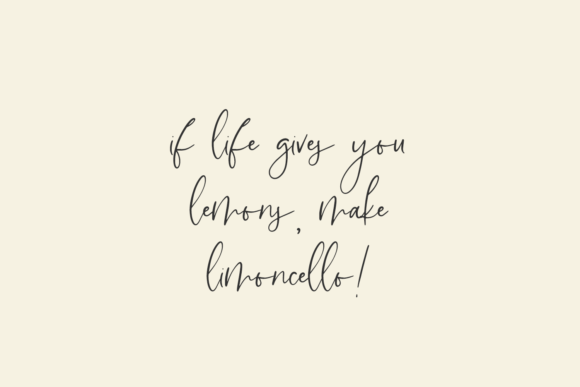 if life gives you
lemons, make
limoncello!